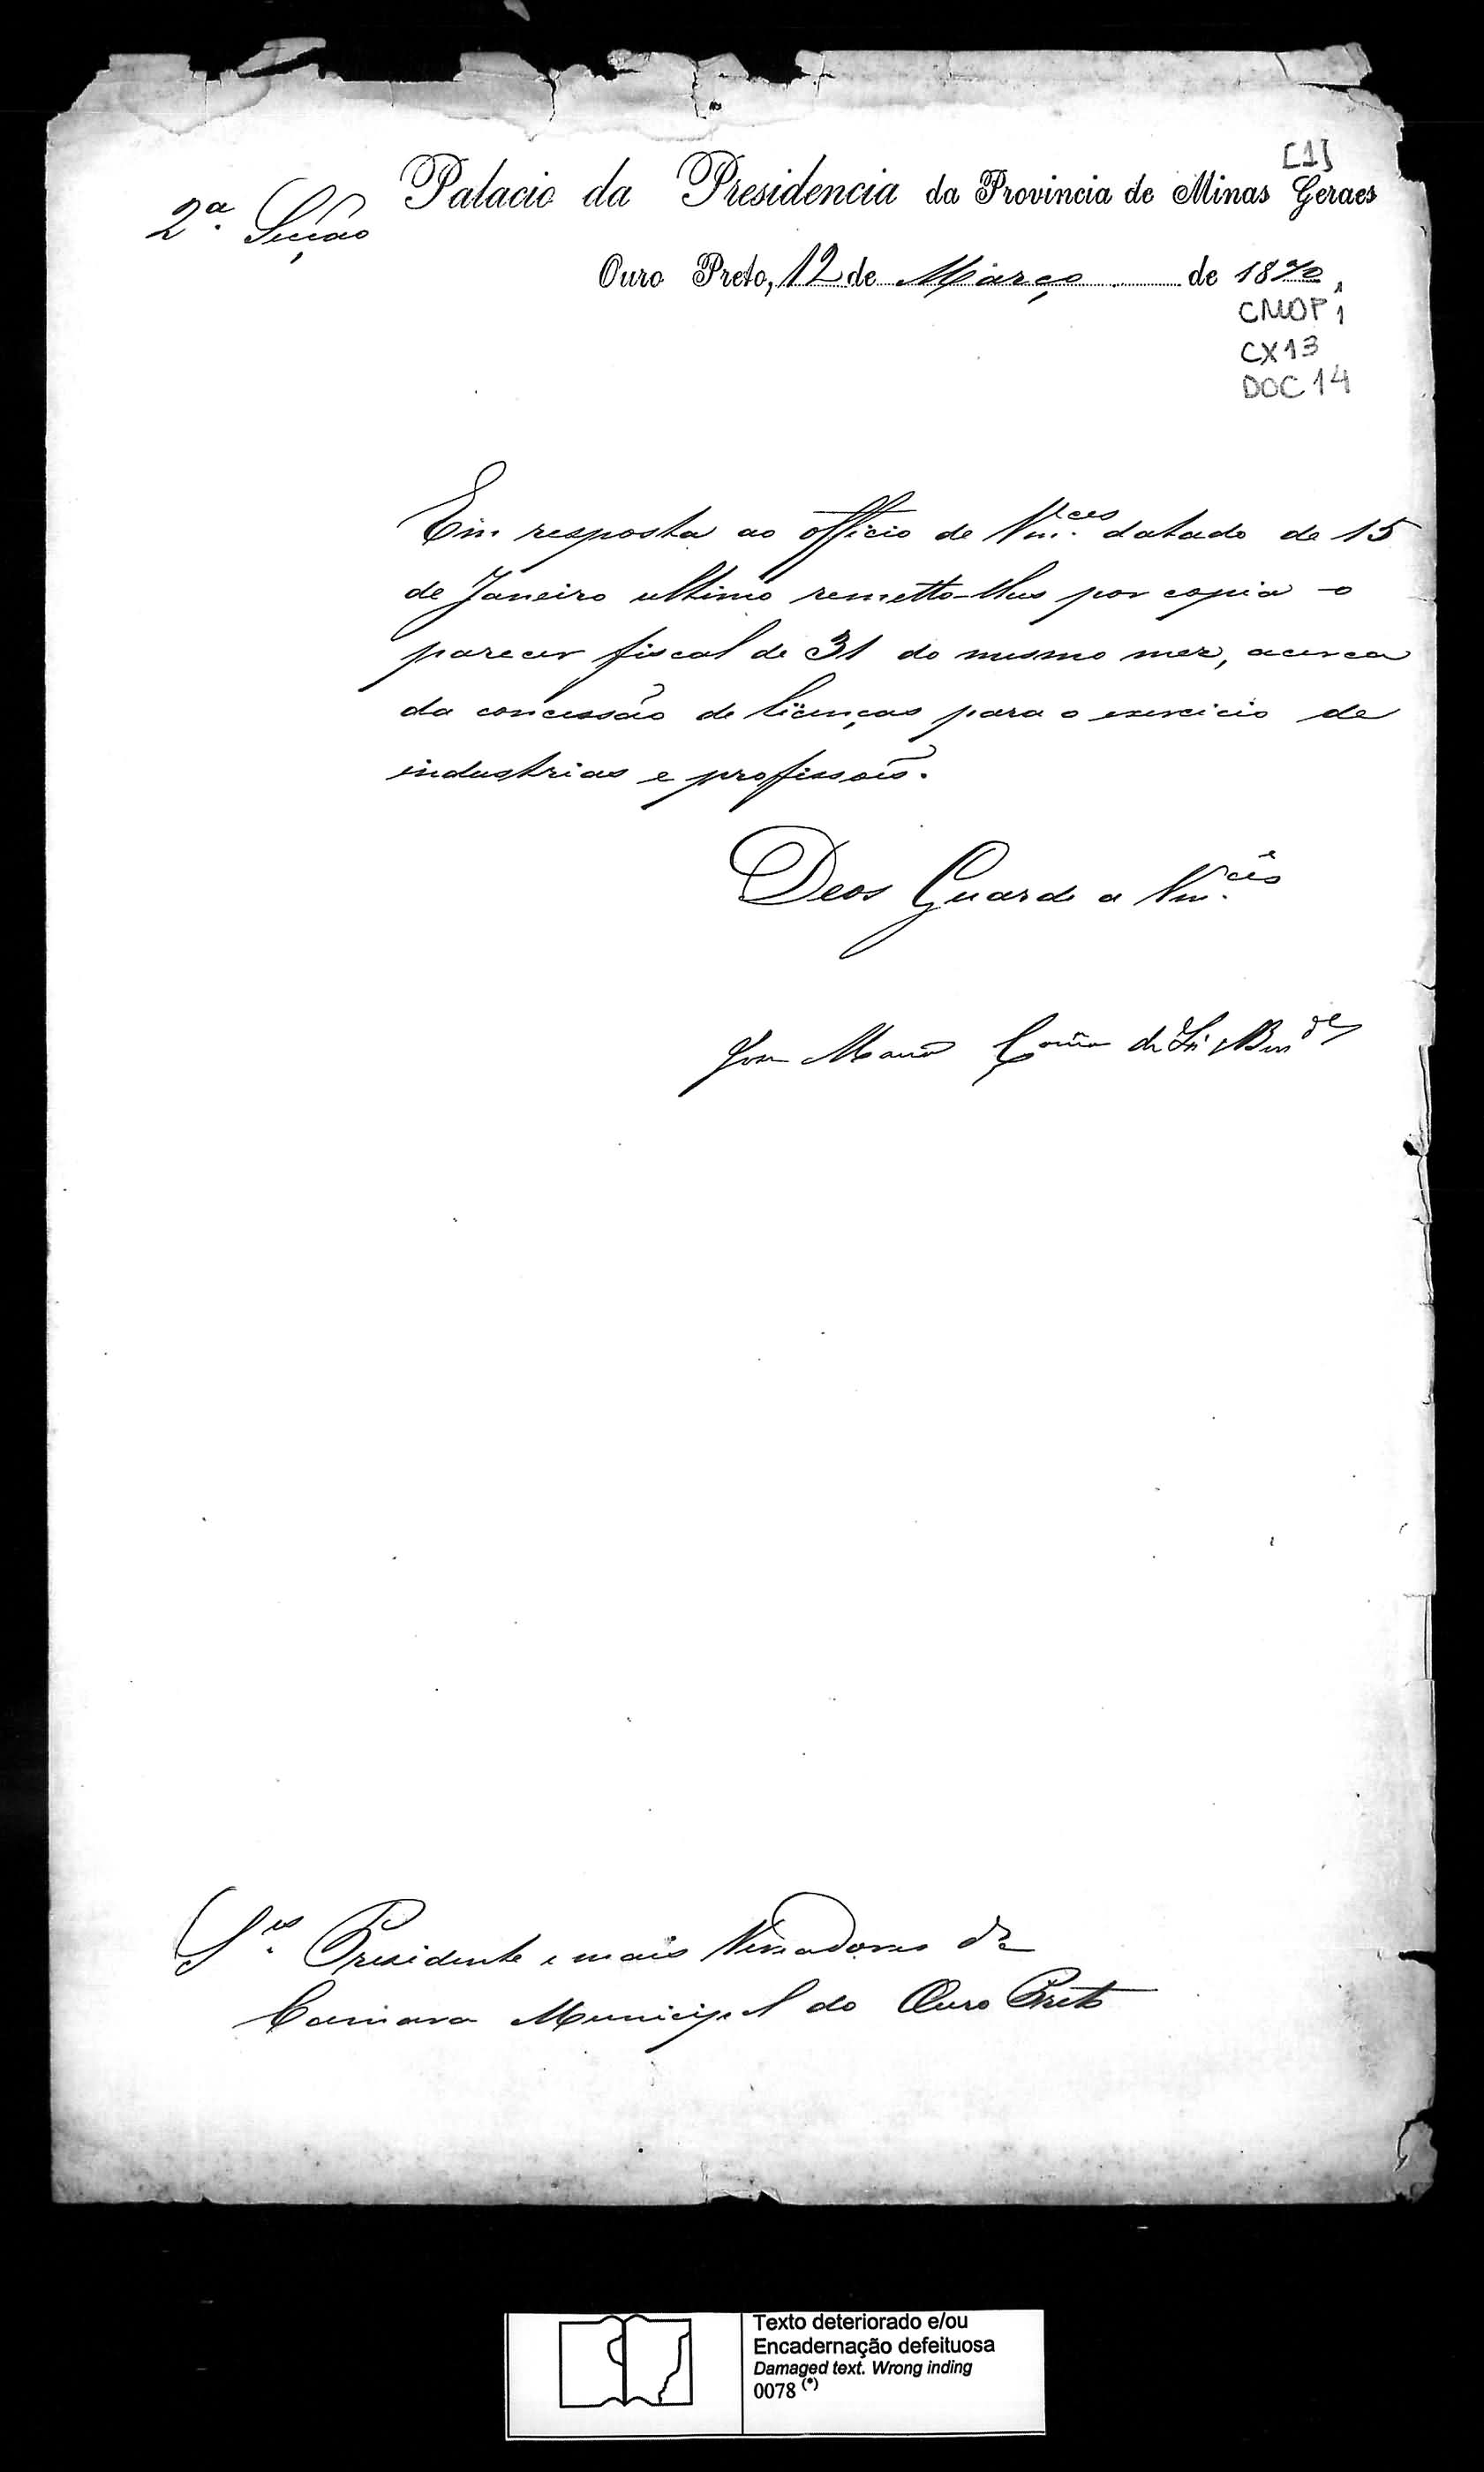 [1]
Palacio da Presidencia da Provincia de Minas Geraes
2ª. Secção
Ouro Preto, 12 de Março de 1870
CMOP 1
CX 13
DOC 14
Em resposta ao officio de Vm.ces datado de 15
de Janeiro ultimo remetto-lhes por copia o
parecer fiscal de 31 do mesmo mez, acerca
da concessão de licenças para o exercicio de
industrias e profissões.
Deos Guarde a Vm.ces
José Maria Corrêa de Sá e Ben.des
S.es Presidente e mais Vereadores da
Camara Municipal do Ouro Preto
Texto deteriorado e/ou
Encadernação defeituosa
Damaged text. Wrong inding
0078 (*)